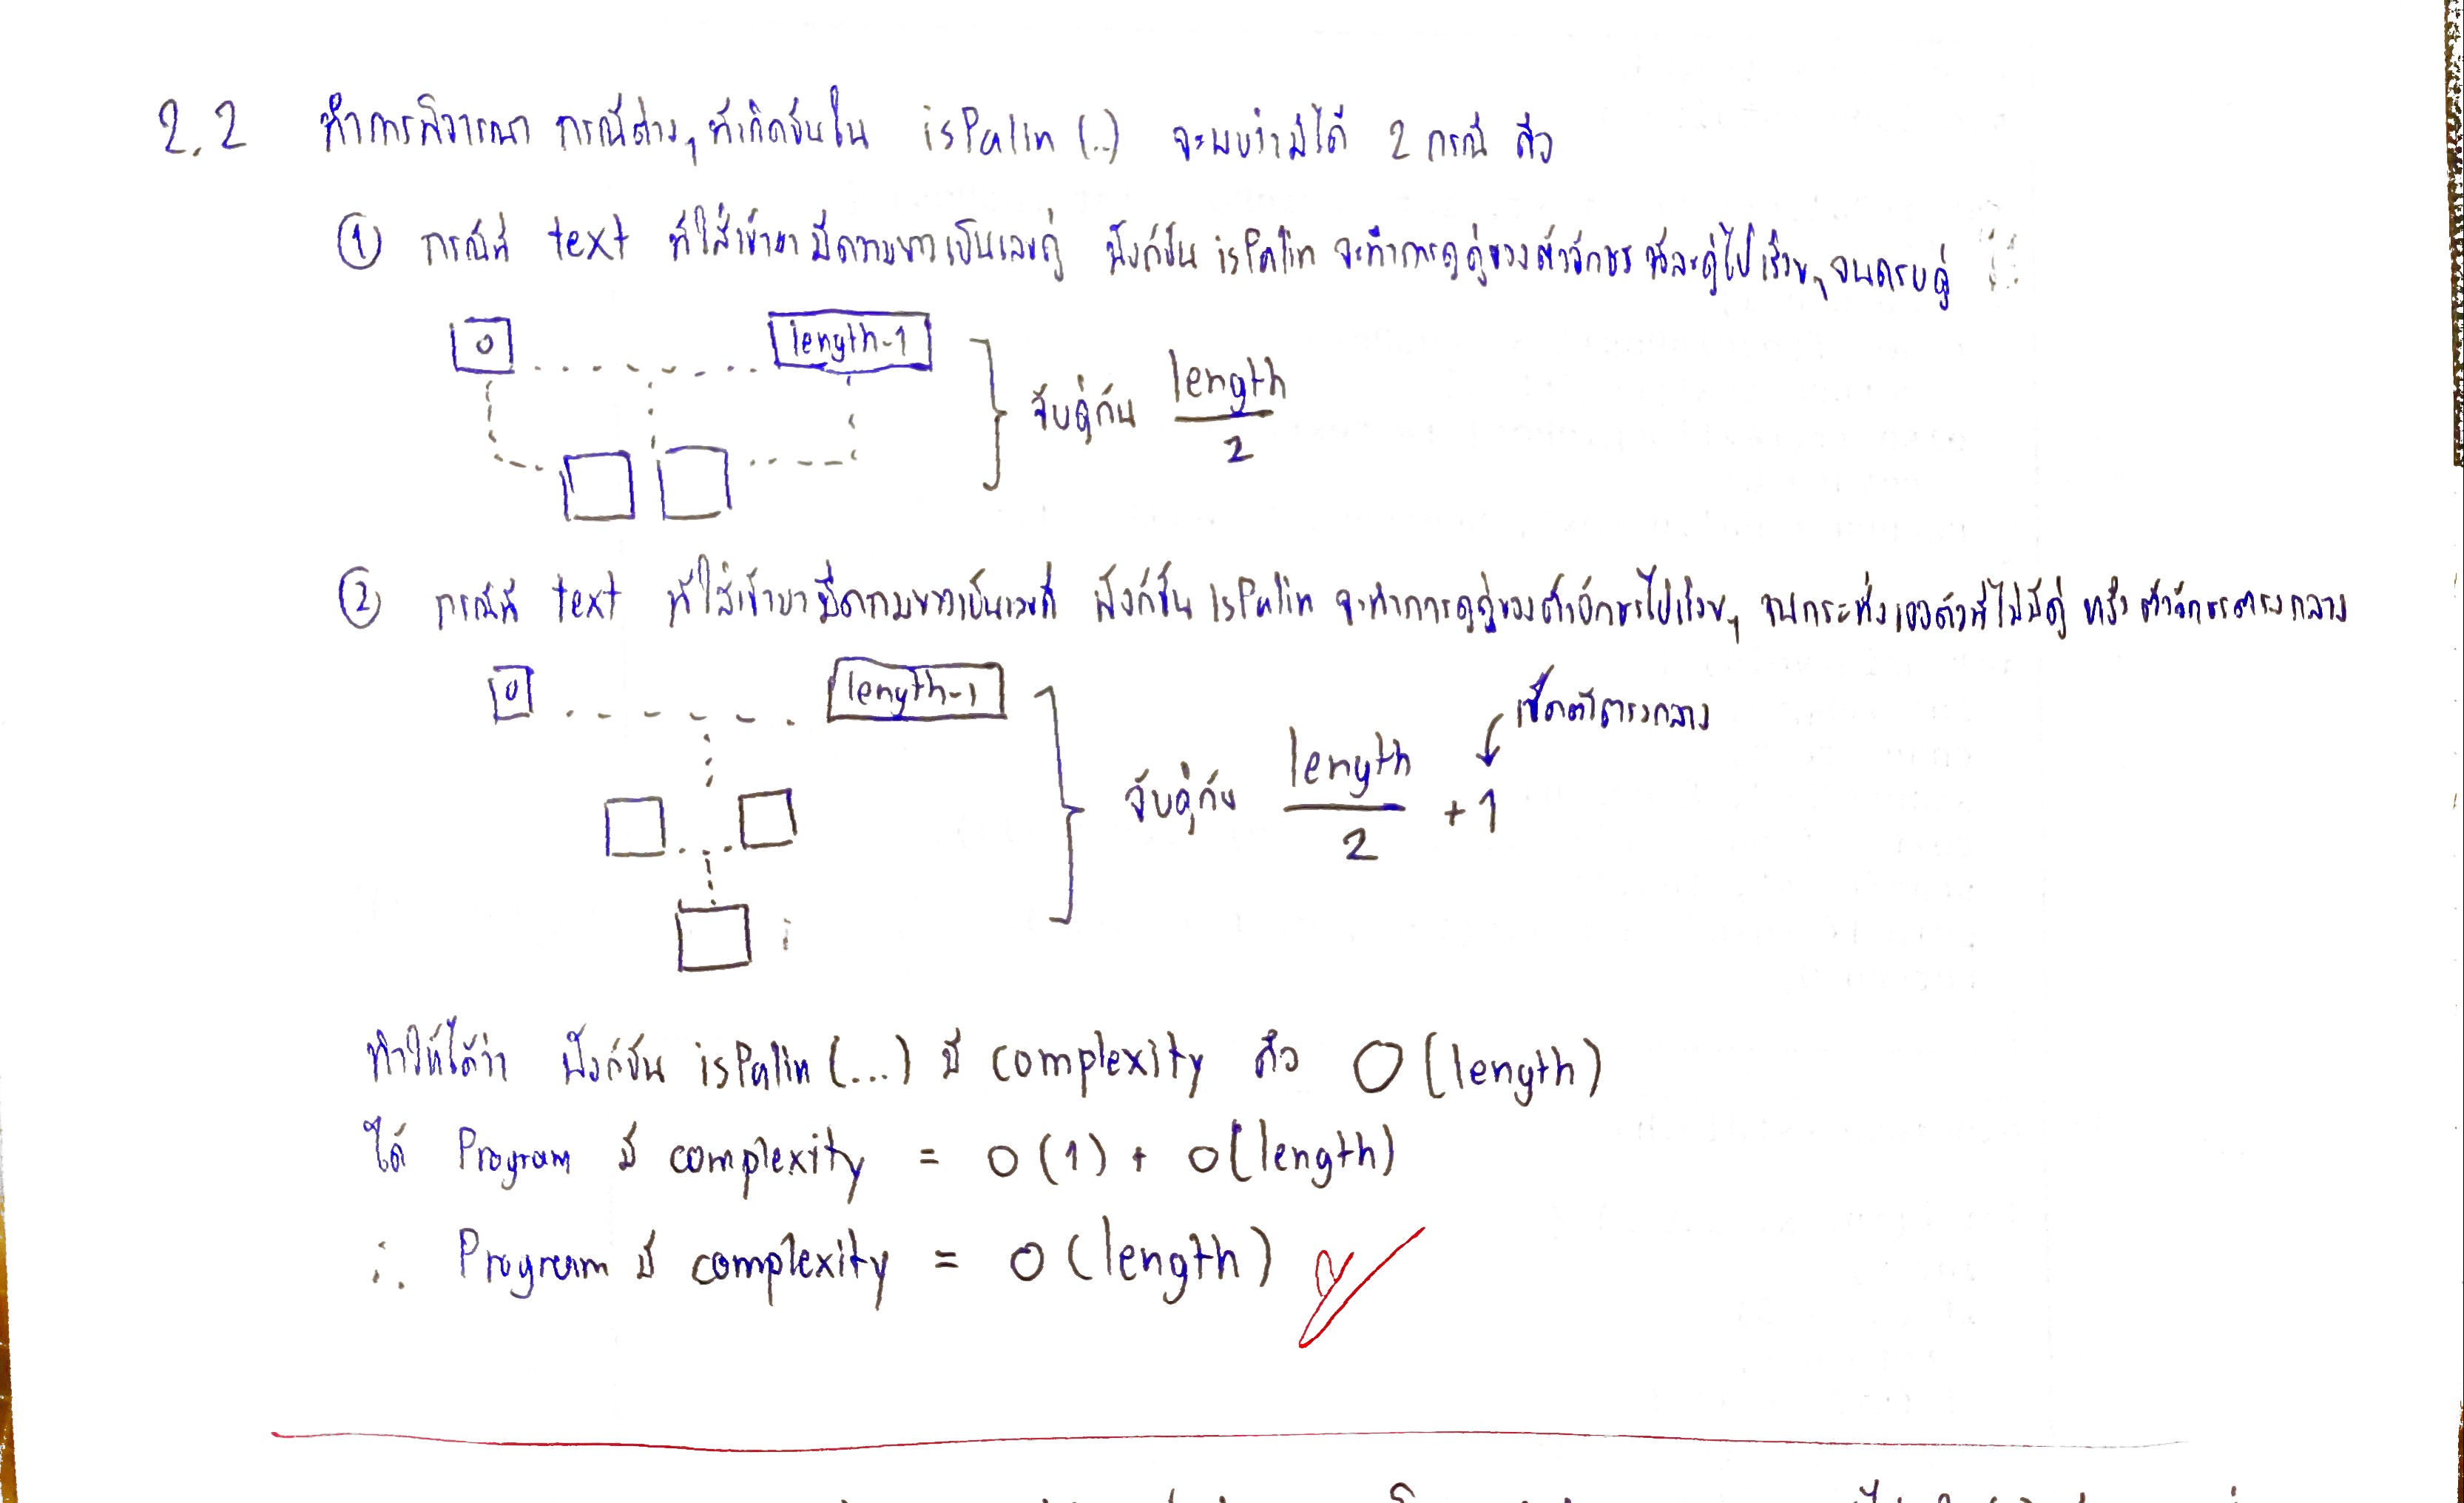 2.2 ทำการพิจารณา กรณีต่างๆ ที่เกิดขึ้นใน isPalin (..) จะพบว่ามีได้ 2 กรณี คือ
① กรณีที่ text ที่ใส่เข้ามา มีความยาวเป็นเลขคู่ ฟังก์ชัน isPalin จะทำการดูคู่ของตัวอักษร ทีละคู่ไปเรื่อยๆ จนครบคู่
0 length-1
จับคู่กัน length/2
② กรณีที่ text ที่ใส่เข้ามา มีความยาวเป็นเลขคี่ ฟังก์ชัน isPalin จะทำการดูคู่ของตัวอักษรไปเรื่อยๆ จนกระทั่งเจอตัวที่ไม่มีคู่ หรือ ตัวอักษรตรงกลาง
0 length-1
เช็คตัวตรงกลาง
จับคู่กัน length/2 + 1
ทำให้ได้ว่า ฟังก์ชัน isPalin (...) มี complexity คือ O (length)
ได้ Program มี complexity = O (1) + O (length)
∴ Program มี complexity = O (length)